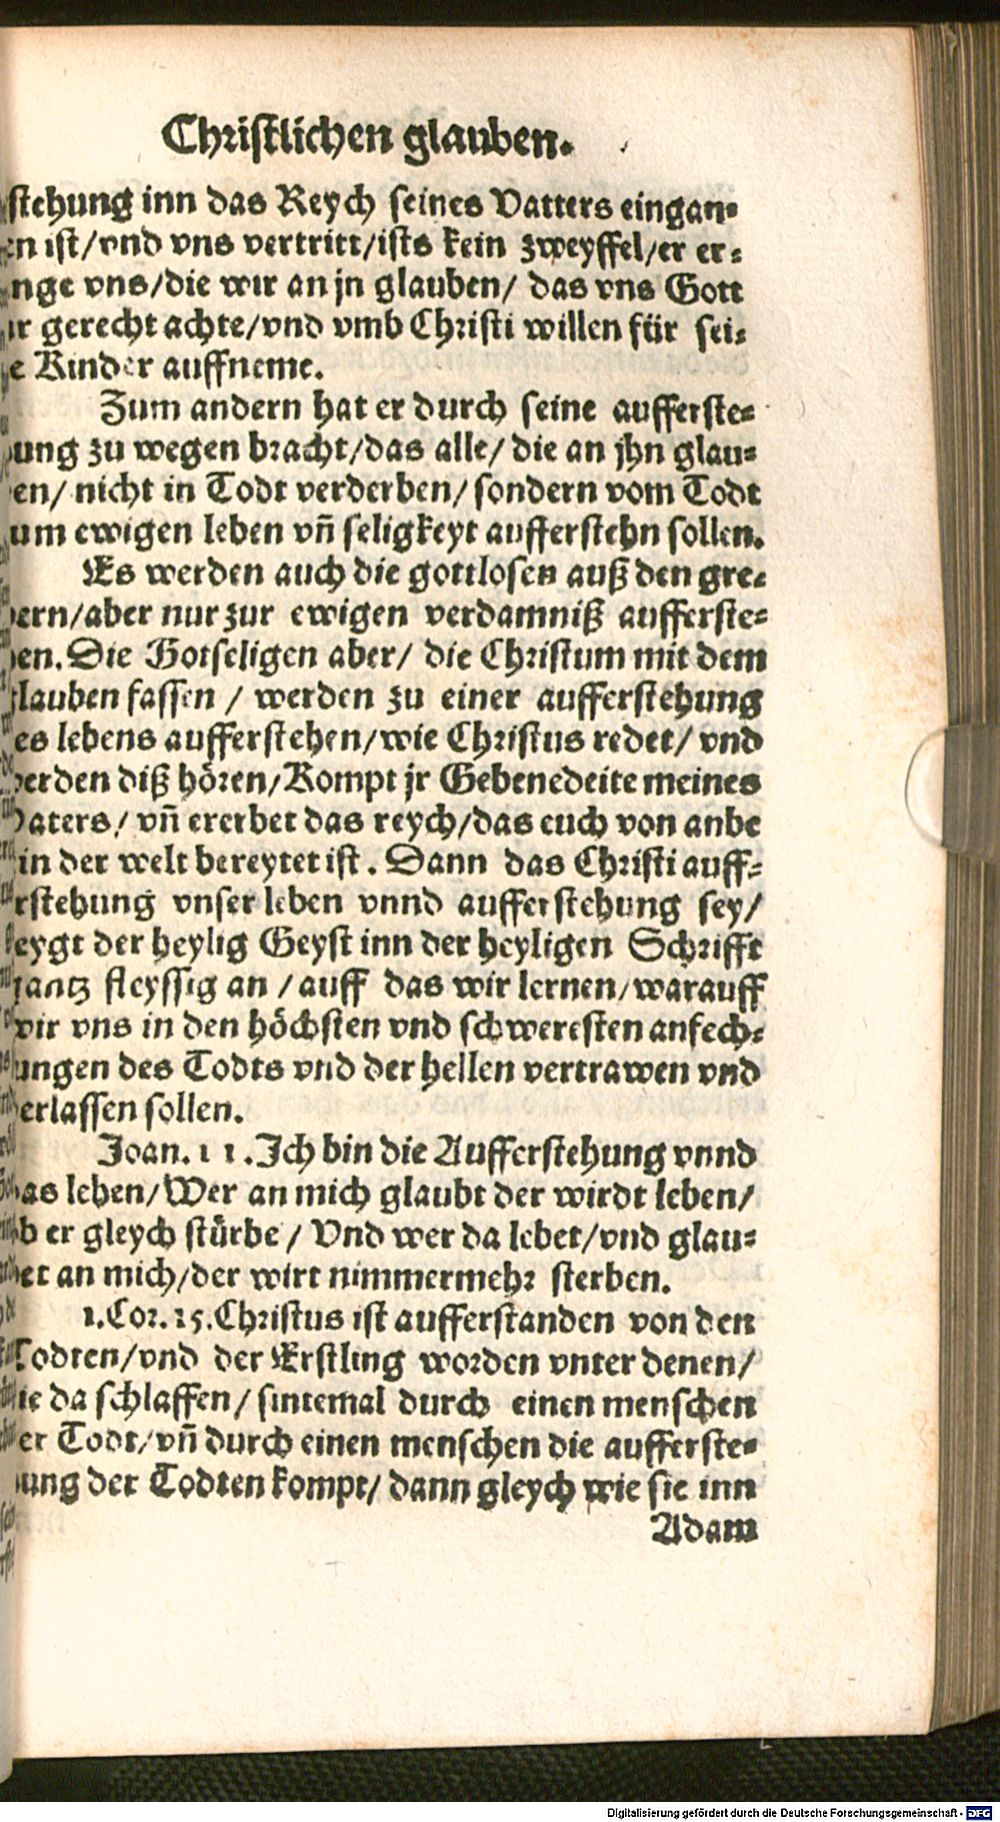 Christlichen glauben.
stehung inn das Reych seines Vatters eingan-
en ist/vnd vns vertritt/ists kein zweyffel/er er-
nge vns/die wir an jn glauben/ das vns Gott
ir gerecht achte/vnd vmb Christi willen für sei-
e Kinder auffneme.
Zum andern hat er durch seine aufferste-
ung zu wegen bracht/das alle/ die an jhn glau-
en/ nicht in Todt verderben/ sondern vom Todt
um ewigen leben vñ seligkeyt aufferstehn sollen.
Es werden auch die gottlosen auß den gre-
ern/aber nur zur ewigen verdamniß aufferste-
en. Die Gotseligen aber/ die Christum mit dem
lauben fassen / werden zu einer aufferstehung
es lebens aufferstehen/wie Christus redet/ vnd
erden diß hören/Kompt jr Gebenedeite meines
aters/ vñ ererbet das reych/das euch von anbe
in der welt bereytet ist. Dann das Christi auff-
rstehung vnser leben vnnd aufferstehung sey/
eygt der heylig Geyst inn der heyligen Schrifft
gantz fleyssig an / auff das wir lernen/warauff
wir vns in den höchsten vnd schweresten anfech-
ungen des Todts vnd der hellen vertrawen vnd
erlassen sollen.
Joan. 11. Ich bin die Aufferstehung vnnd
as leben/Wer an mich glaubt der wirdt leben/
b er gleych stürbe / Vnd wer da lebet/vnd glau-
et an mich/der wirt nimmermehr sterben.
1. Cor. 15. Christus ist aufferstanden von den
Todten/vnd der Erstling worden vnter denen/
ie da schlaffen/ sintemal durch einen menschen
er Todt/vñ durch einen menschen die aufferste-
ung der Todten kompt/ dann gleych wie sie inn
Adam
Digitalisierung gefördert durch die Deutsche Forschungsgemeinschaft - DFG